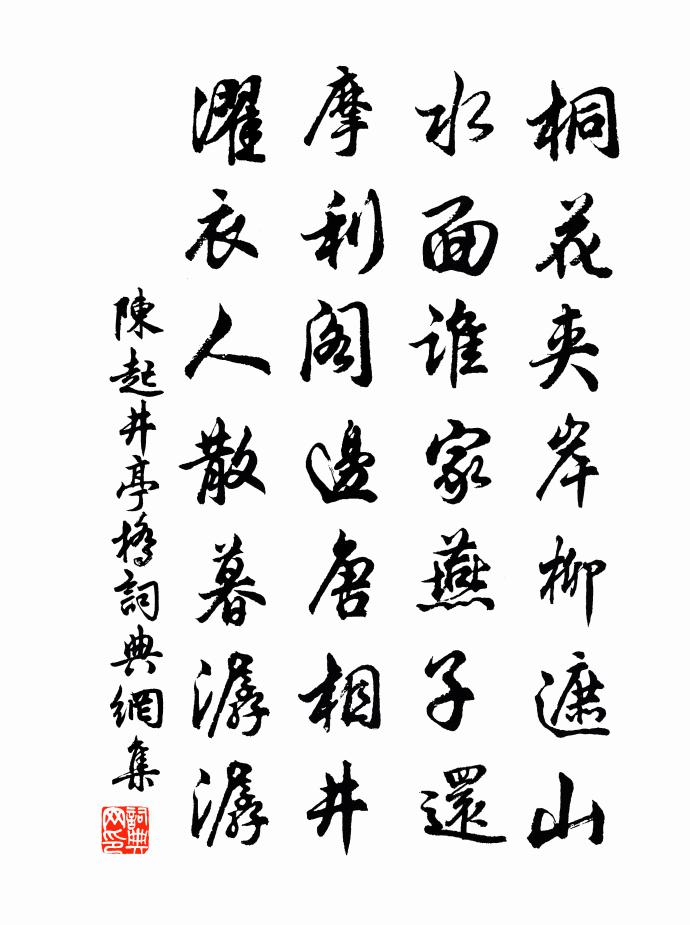 桐花夾岸柳遮山
水面誰家燕子還
摩利閣邊唐相井
濯衣人散暮潺潺
陳起井亭橋詞典網集
詞典网印